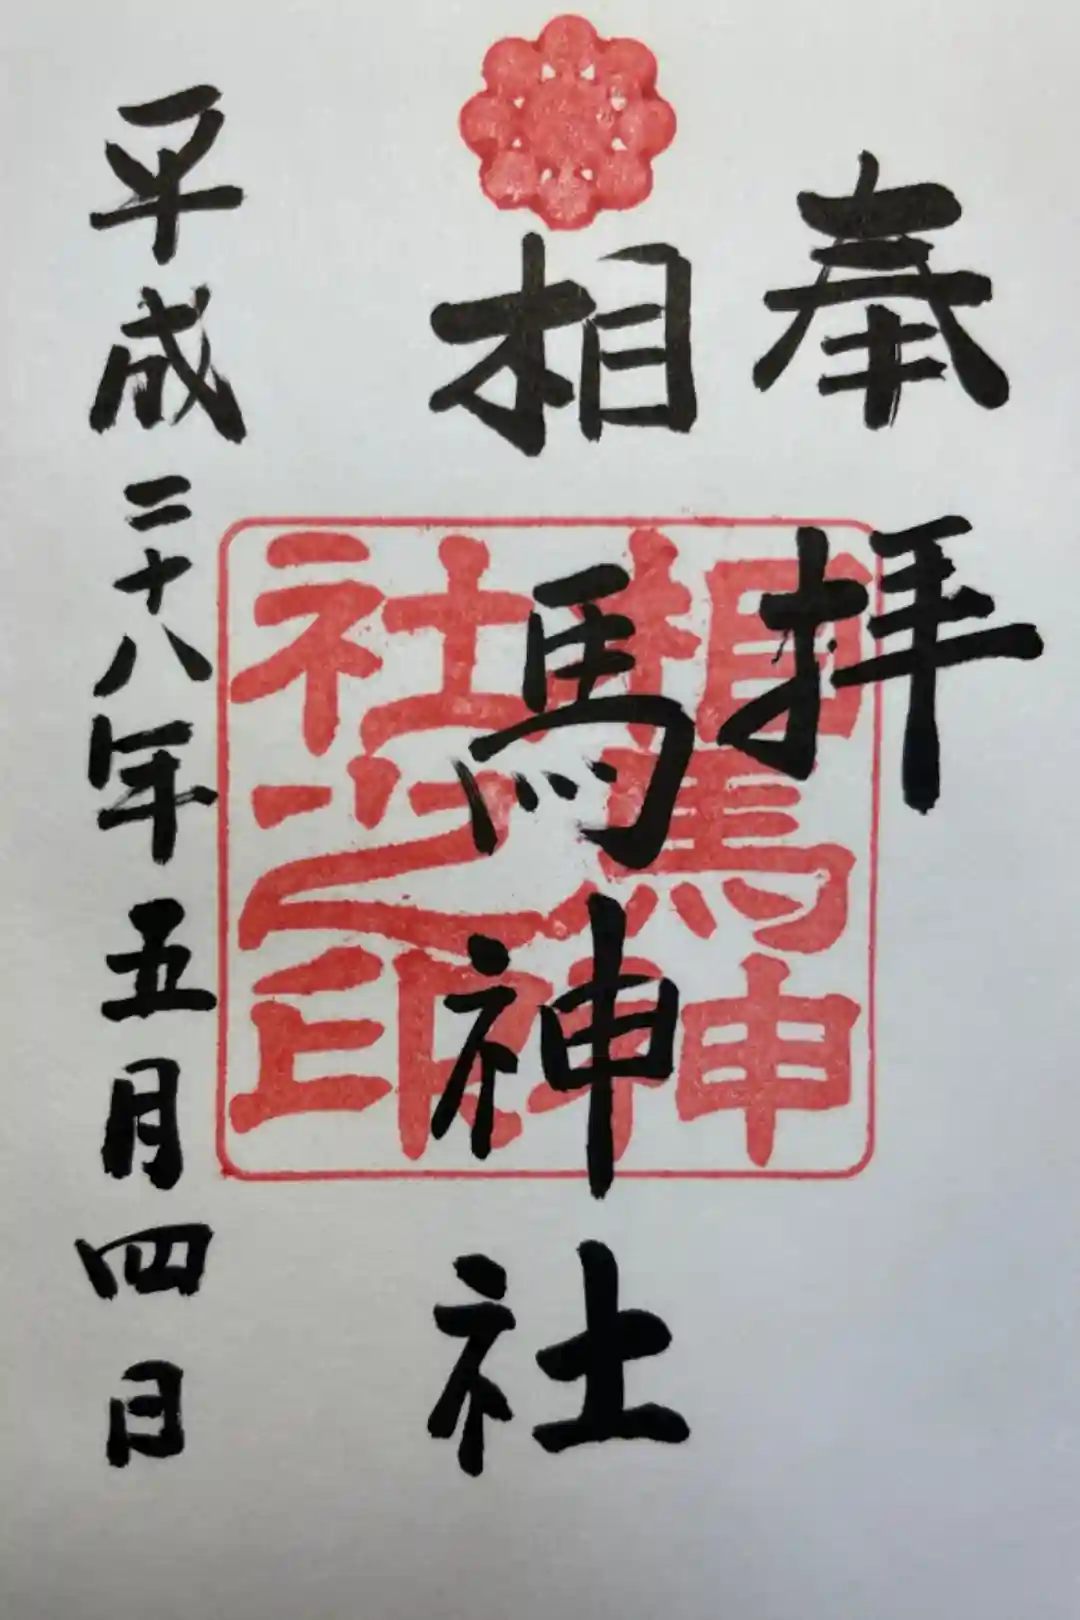 奉拝
相馬神社
相馬神社之印
平成二十八年五月四日